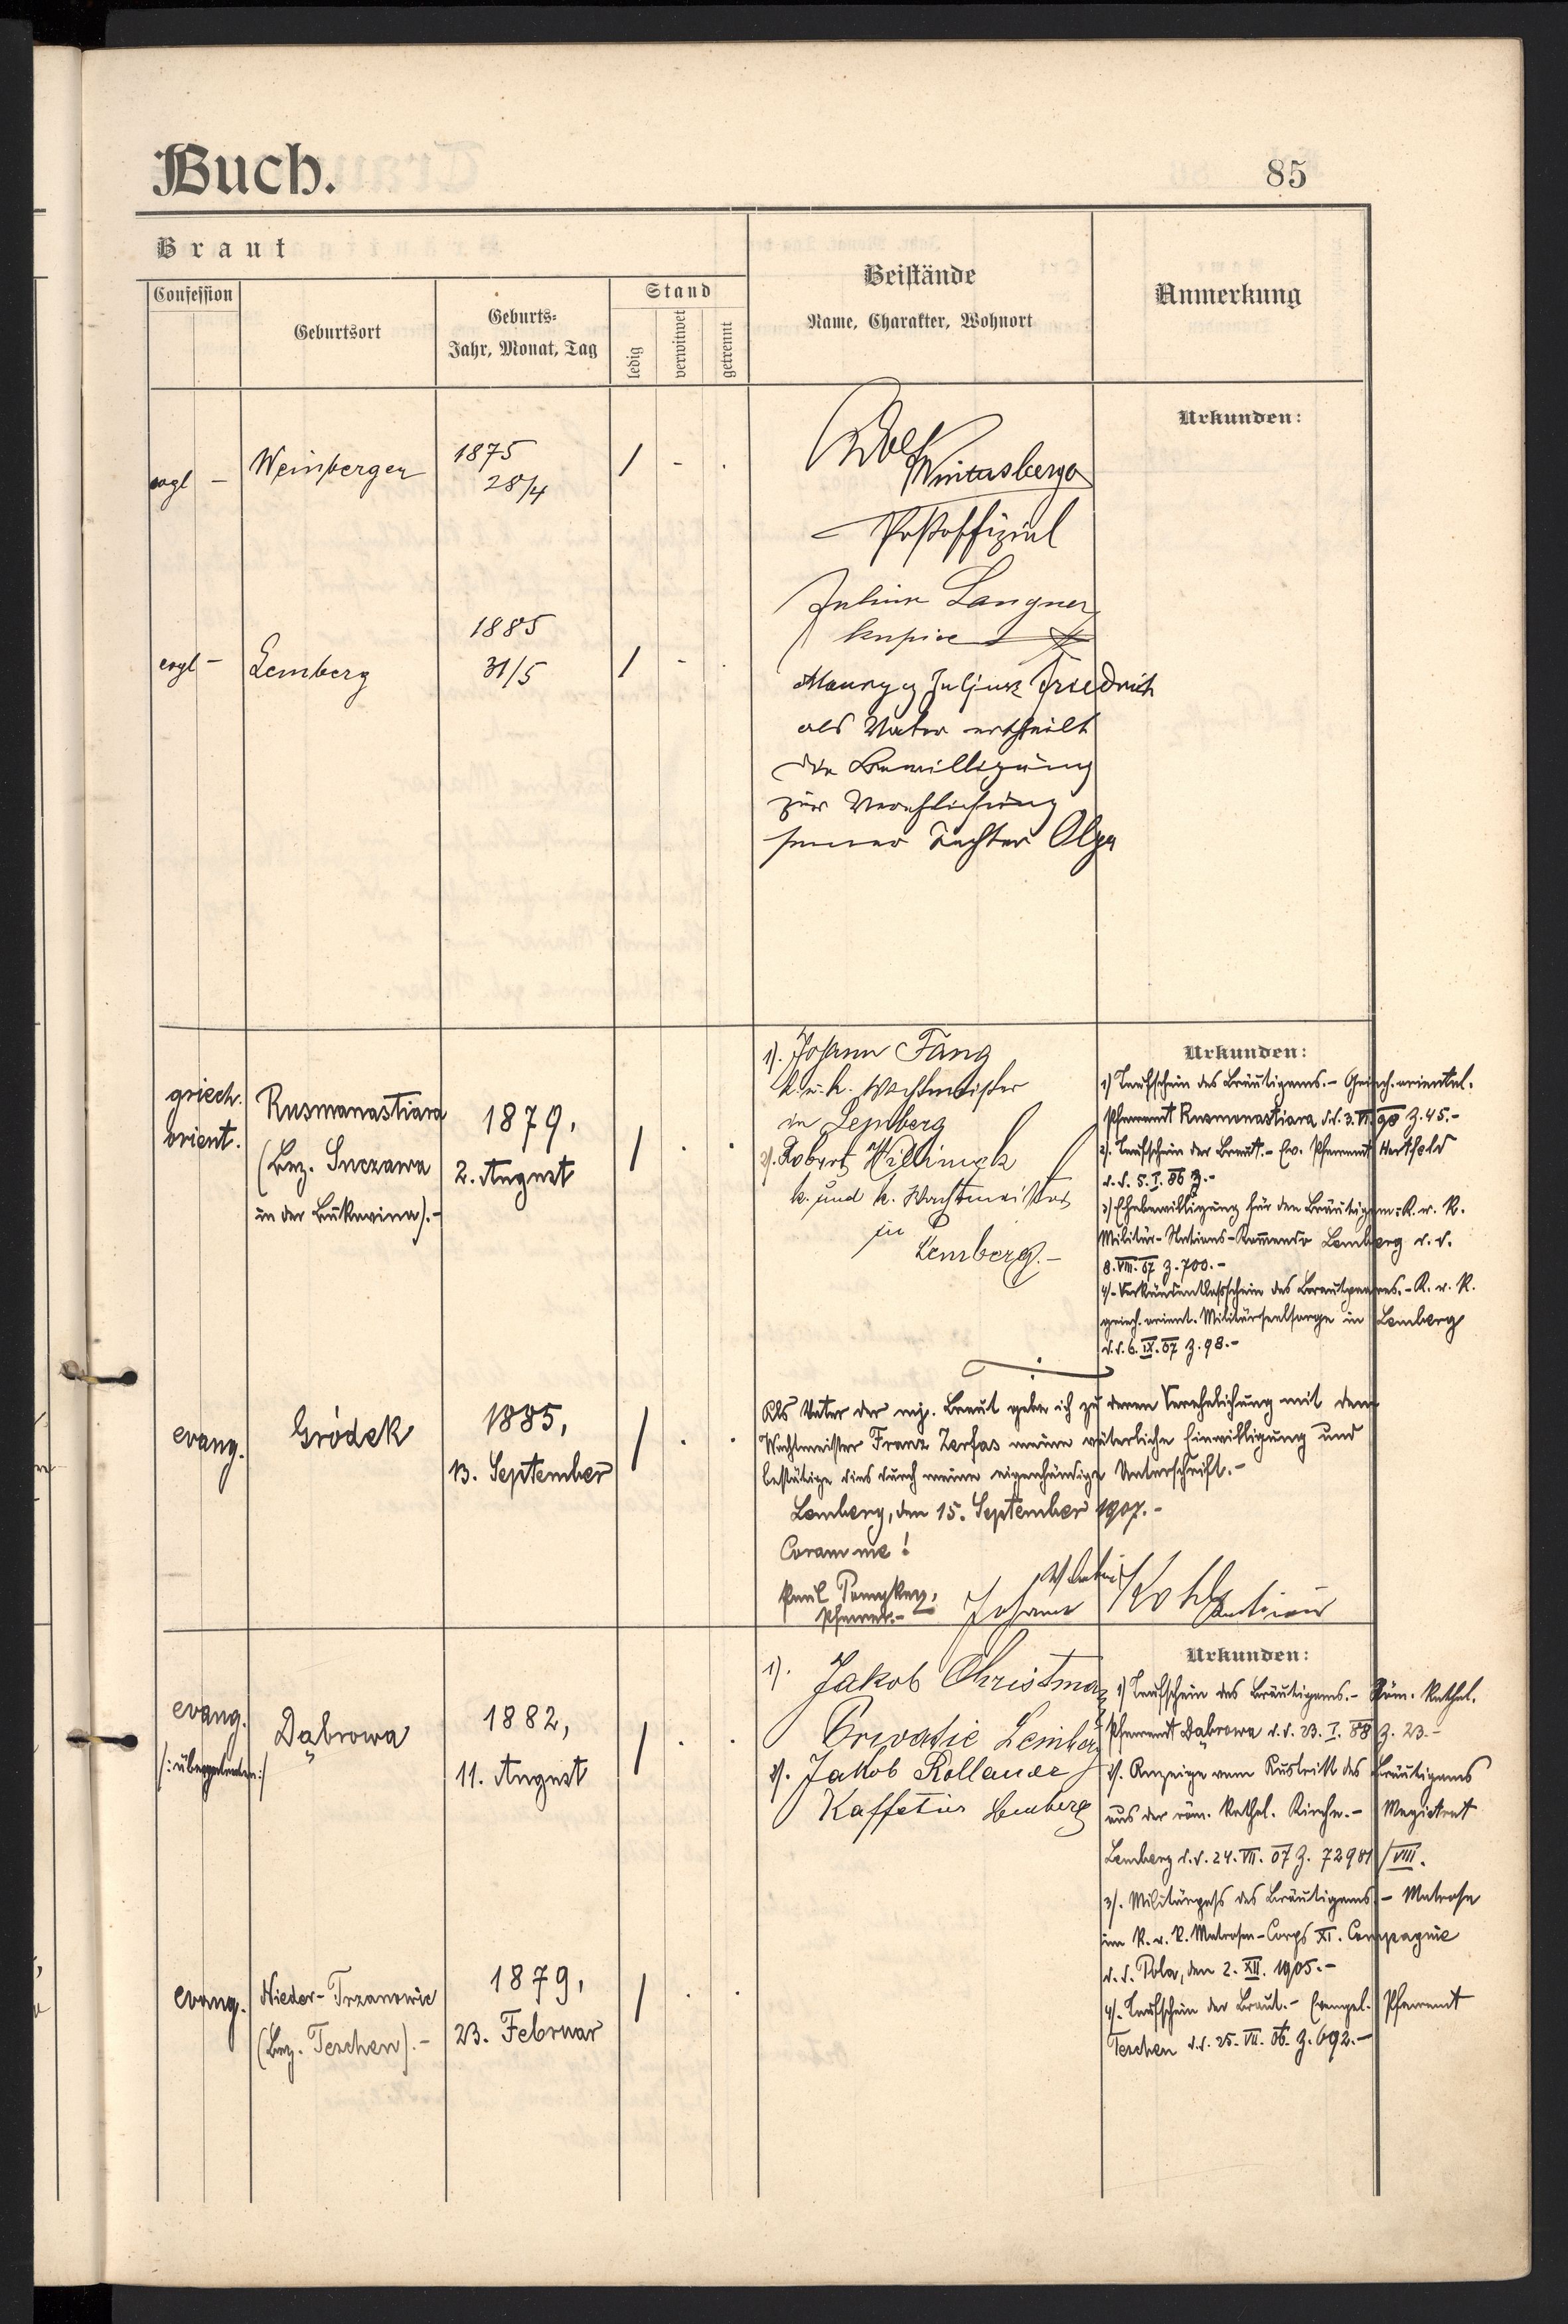 Buch.
85
Braut
Confession
Geburtsort
Geburts-
Jahr, Monat, Tag
Stand
ledig
verwitwet
getrennt
Beistände
Name, Charakter, Wohnort
Anmerkung
Urkunden:
evgl -
Weinbergen
1875
28/4
/ - .
Postoffizial
Julius Langner
kupiec
evgl -
Lemberg
1885
31/5
/ - .
Maurycy Juljusz Friedrich
als Vater ertheilt
die Bewilligung
zur Verehlichung
seiner Tochter Olga
griech.
orient.
Rusmanastiara
(Bez. Suczawa
in der Bukowina).-
1879,
2. August
/ . .
1). Johann Fang
k. u. k. Wachtmeister
in Lemberg
2). Robert Willimek
k. und k. Wachtmeister
in
Lemberg.-
Urkunden:
1) Taufschein des Bräutigams.- Griech.-oriental.
Pfarramt Rusmanastiara d.d. 3.VI.98 Z.45.-
2). Taufschein der Braut.- Ev. Pfarramt Hartfeld
d.d. 5.I.86 Z.-
3) Ehebewilligung für den Bräutigam:- K. u. K.
Militär-Stations-Kommando Lemberg d.d.
8.VIII.07 Z.700.-
4).- Verkündentlassschein des Brautpaares.- K. u. K.
griech.-orient. Militärseelsorge in Lemberg
d.d. 6.IX.07 Z.98.-
evang.
Gródek
1885,
13. September
/ . .
Als Vater der mj. Braut gebe ich zu deren Verehelichung mit dem
Wachtmeister Franz Zerfas meine väterliche Einwilligung und
bestätige dies durch meine eigenhändige Unterschrift.-
Lemberg, den 15. September 1907.-
Coram me!
Paul
Pfarrer.-
Johann Kohl
evang.
/:übergetreten:/
Dąbrowa
1882,
11. August
/ . .
1). Jakob Christman
Privatie Lemberg
2). Jakob Rollauer
Kaffetier Lemberg
Urkunden:
1) Taufschein des Bräutigams.- Röm. kathol.
Pfarramt Dąbrowa d.d. 23.I.88 Z. 23.-
2). Anzeige vom Austritt des Bräutigams
aus der röm. kathol. Kirche.- Magistrat
Lemberg d.d. 24.VII.07 Z. 72981/VIII.
3). Militärpass des Bräutigams.- Matrose
im K. u. K. Matrosen-Corps XI. Compagnie
d.d. Pola, den 2. XII. 1905.-
4). Taufschein der Braut.- Evangel. Pfarramt
Teschen d.d. 25.VII.06. Z. 692.-
evang.
Nieder-Trzanowic
(Bez. Teschen).-
1879,
23. Februar
/ . .